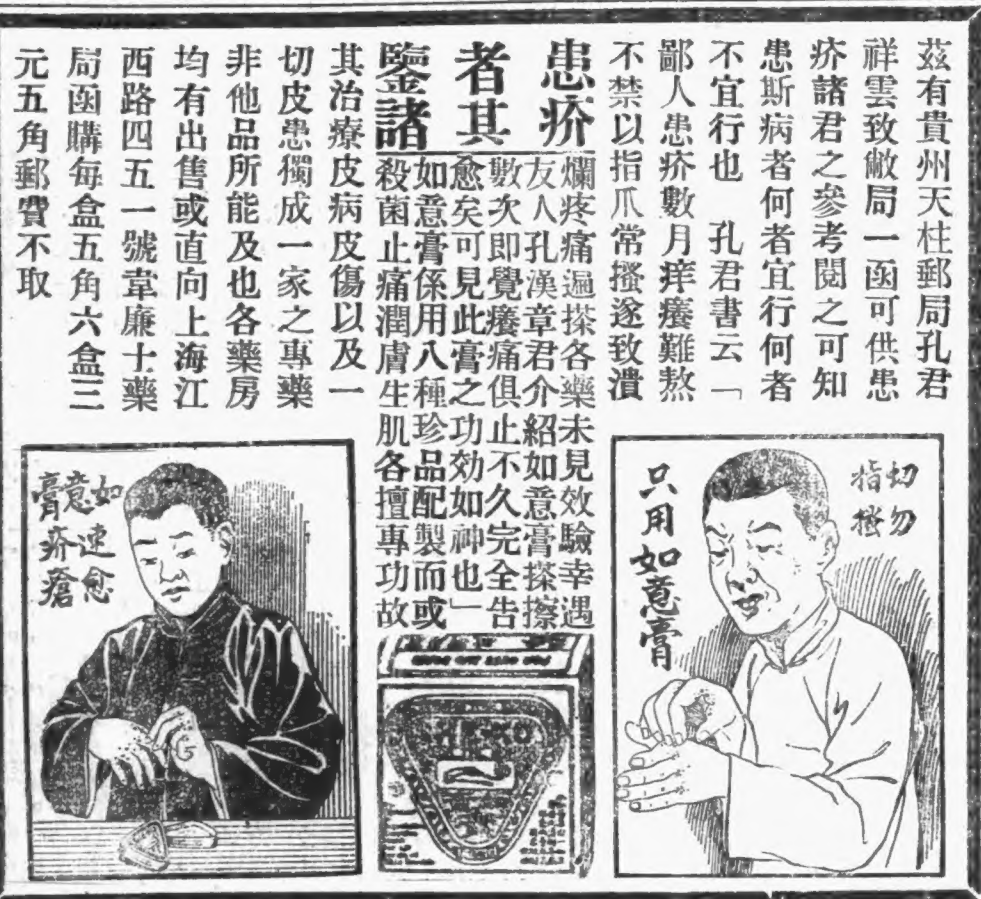 患疥
者其
鑒諸
茲有貴州天柱郵局孔君
祥雲致敝局一函可供患
疥諸君之參考閱之可知
患斯病者何者宜行何者
不宜行也　孔君書云「
鄙人患疥數月痒癢難熬
不禁以指爪常搔遂致潰
爛疼痛遍搽各藥未見效驗幸遇
友人孔漢章君介紹如意膏搽擦
數次即覺癢痛俱止不久完全告
愈矣可見此膏之功効如神也」
如意膏係用八種珍品配製而或
殺菌止痛潤膚生肌各擅專功故
其治療皮病皮傷以及一
切皮患獨成一家之專藥
非他品所能及也各藥房
均有出售或直向上海江
西路四五一號韋廉士藥
局函購每盒五角六盒三
元五角郵費不取
切勿
指搔
只用如意膏
如意膏
速愈
疥瘡